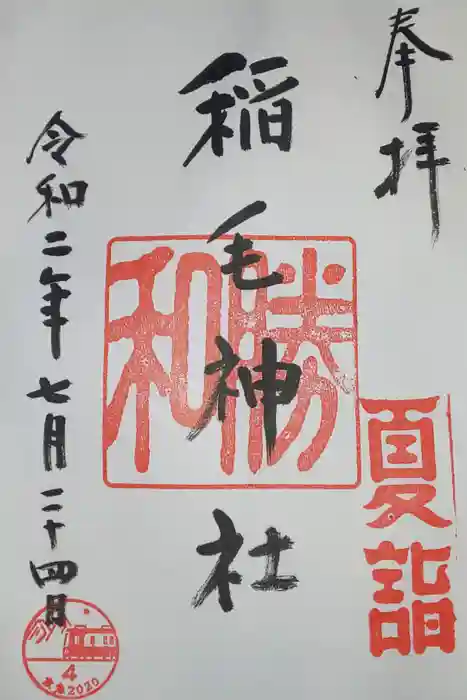 奉拝
夏詣
稲毛神社
勝和
令和二年七月二十四日
4
2020